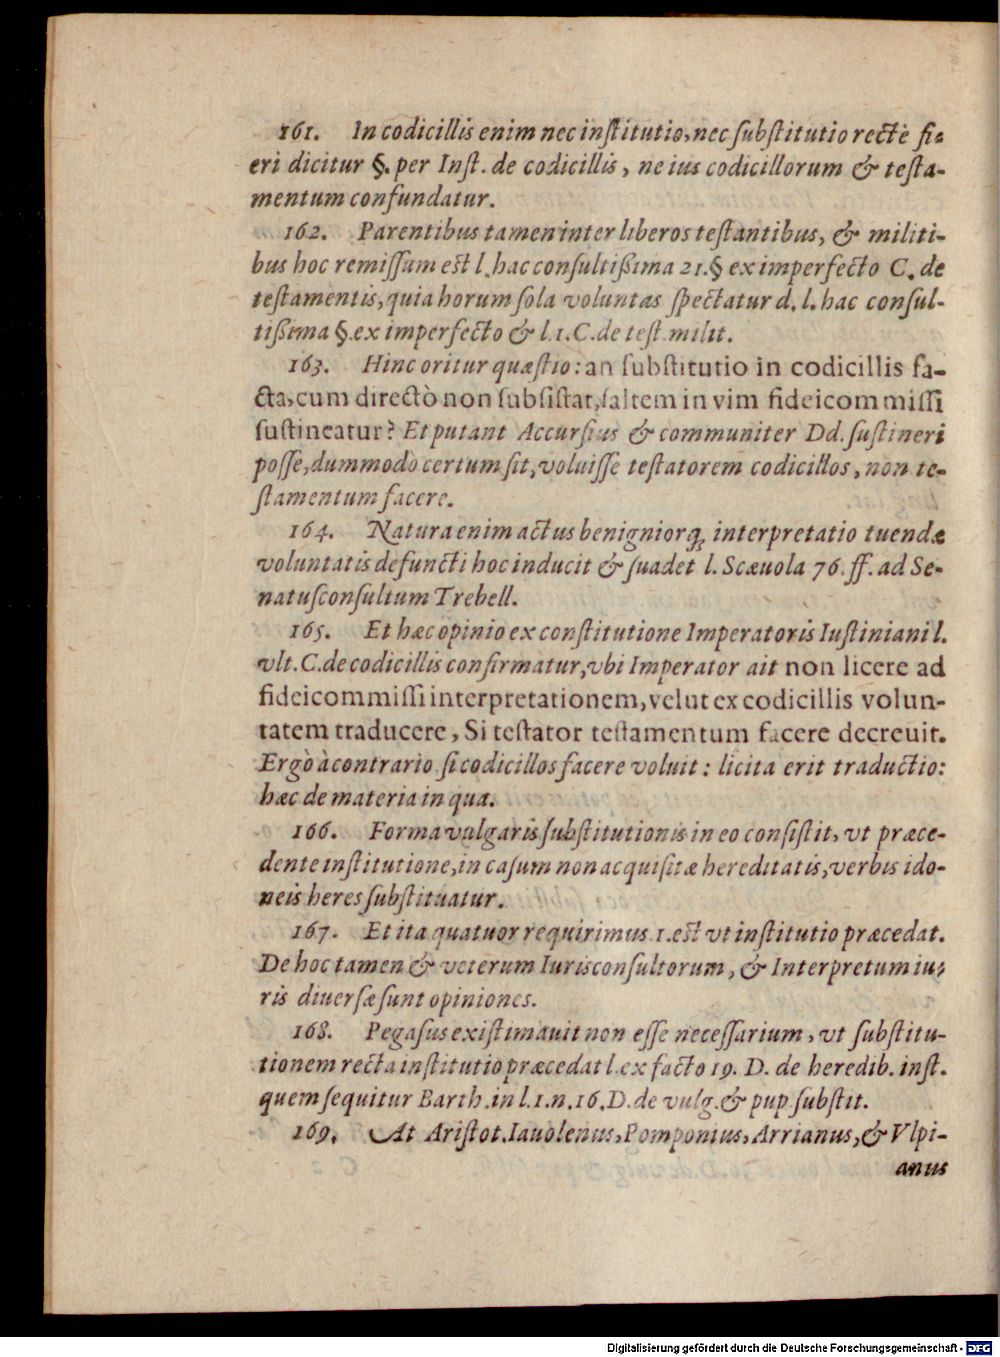 161. In codicillis enim nec institutio, nec substitutio rectè fi-
eri dicitur §. per Inst. de codicillis, ne ius codicillorum & testa-
mentum confundatur.
162. Parentibus tamen inter liberos testantibus, & militi-
bus hoc remissum est l. hac consultißima 21. § ex imperfecto C. de
testamentis, quia horum sola voluntas spectatur d. l. hac consul-
tißima §. ex imperfecto & l. 1. C. de test. milit.
163. Hinc oritur quæstio: an substitutio in codicillis fa-
cta, cum directò non subsistat, saltem in vim fideicommissi
sustineatur? Et putant Accursius & communiter Dd. sustineri
posse, dummodo certum sit, voluisse testatorem codicillos, non te-
stamentum facere.
164. Natura enim actus benigniorq; interpretatio tuendæ
voluntatis defuncti hoc inducit & suadet l. Scæuola 76. ff. ad Se-
natusconsultum Trebell.
165. Et hæc opinio ex constitutione Imperatoris Iustiniani l.
vlt. C. de codicillis confirmatur, vbi Imperator ait non licere ad
fideicommissi interpretationem, velut ex codicillis volun-
tatem traducere, Si testator testamentum facere decreuit.
Ergò à contrario si codicillos facere voluit: licita erit traductio:
hæc de materia in qua.
166. Forma vulgaris substitutionis in eo consistit, vt præce-
dente institutione, in casum non acquisitæ hereditatis, verbis ido-
neis heres substituatur.
167. Et ita quatuor requirimus 1. est vt institutio præcedat.
De hoc tamen & veterum Iurisconsultorum, & Interpretum iu-
ris diuersæ sunt opiniones.
168. Pegasus existimauit non esse necessarium, vt substitu-
tionem recta institutio præcedat l. ex facto 19. D. de heredib. inst.
quem sequitur Barth. in l. 1. n. 16. D. de vulg. & pup. substit.
169. At Aristot. Iauolenus, Pomponius, Arrianus, & Vlpi-
anus
Digitalisierung gefördert durch die Deutsche Forschungsgemeinschaft - DFG